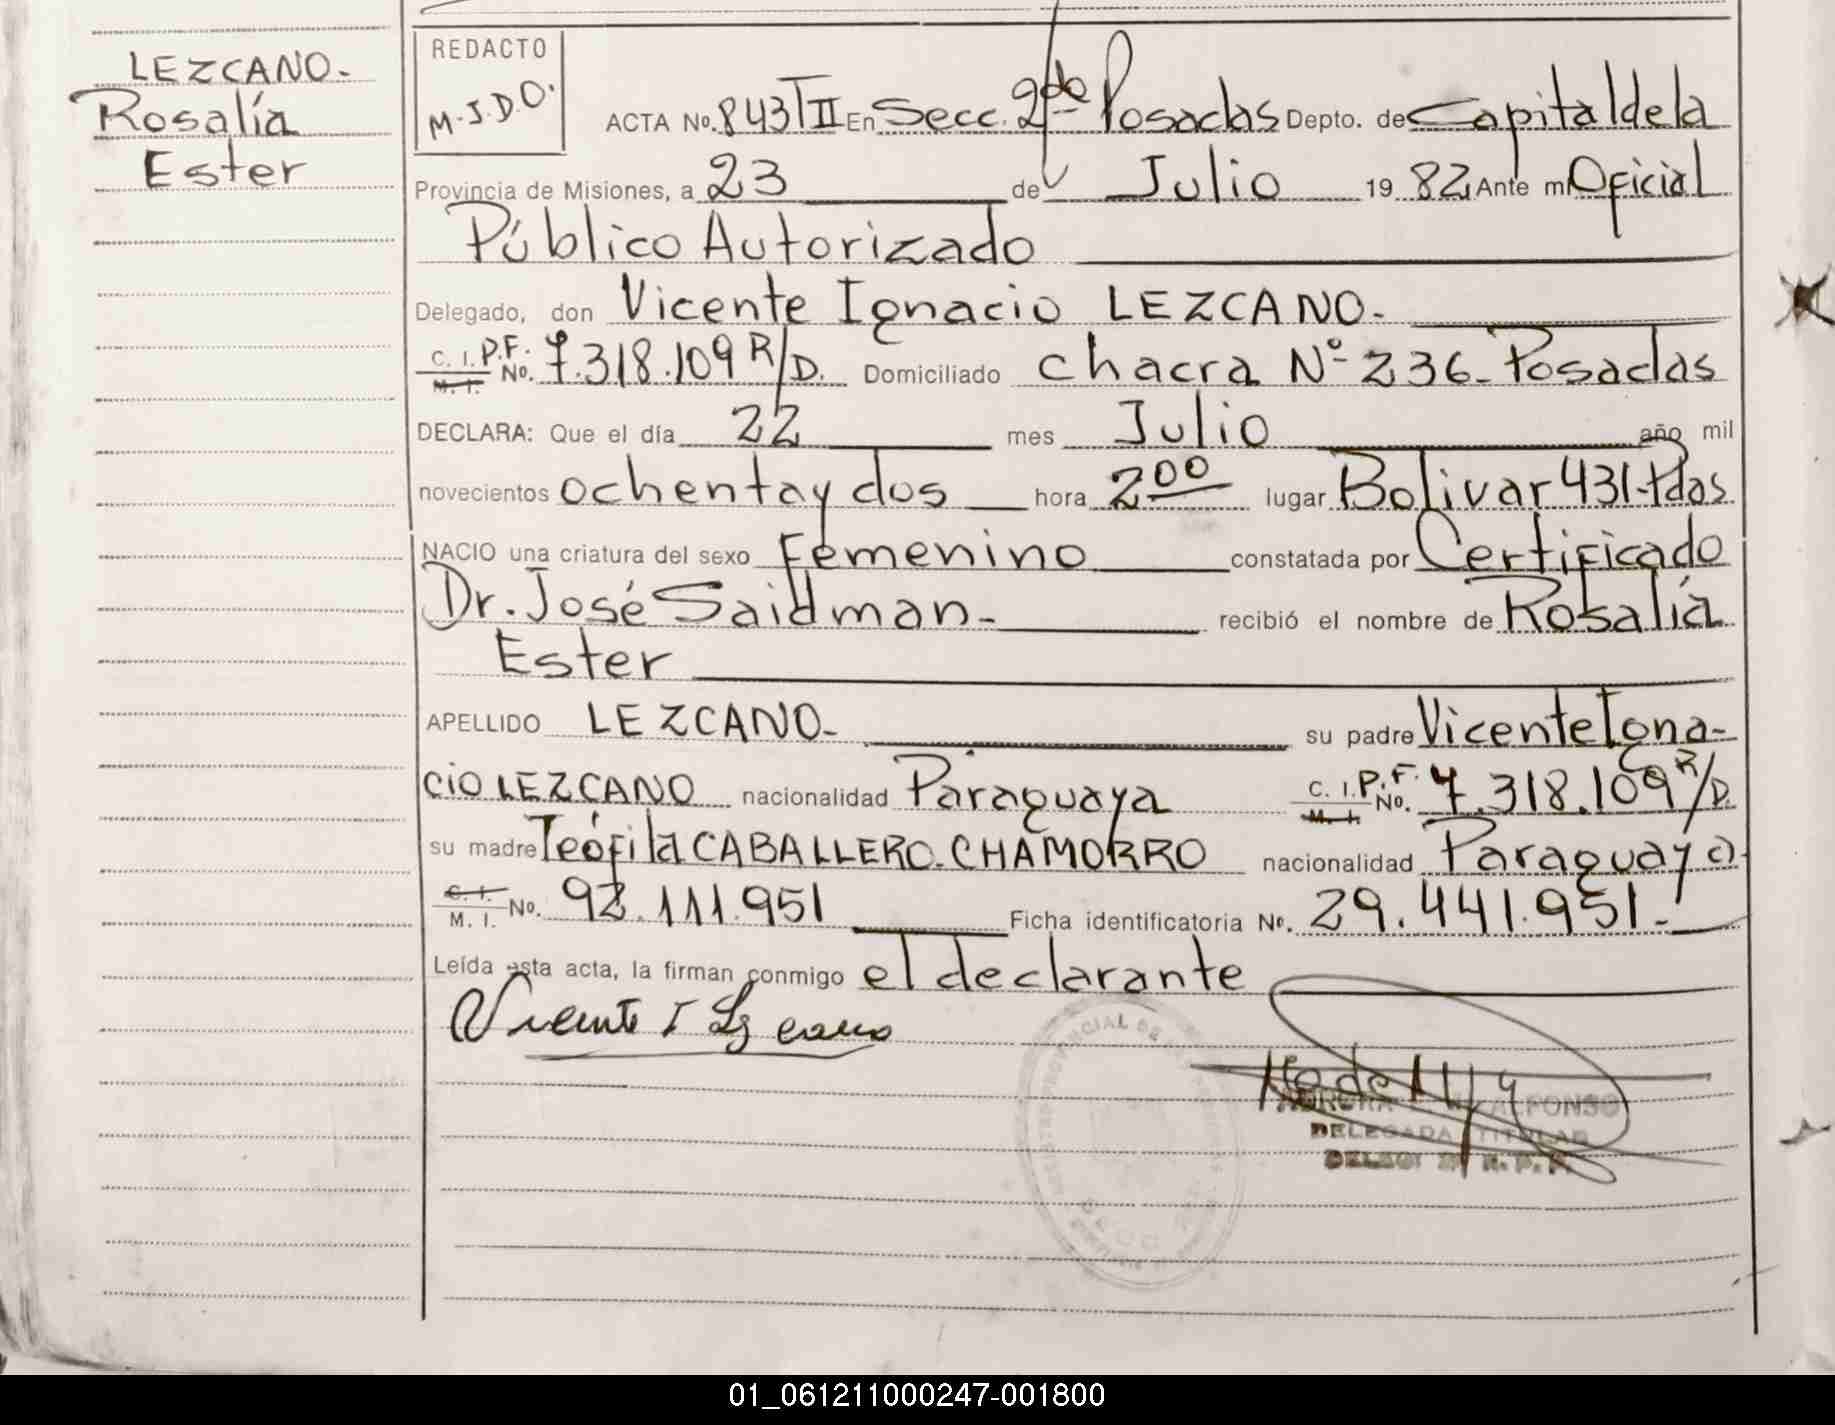 LEZCANO.
Rosalía
Ester
REDACTO
M.J.D.O.
ACTA No. 843 TII En Secc. 2da Posadas Depto. de Capital de la
Provincia de Misiones, a 23 de Julio 1982 Ante mí Oficial
Público Autorizado
Delegado, don Vicente Ignacio LEZCANO.
C. I. P.F. M. I. No. 7.318.109 R/D. Domiciliado chacra Nº 236- Posadas
DECLARA: Que el día 22 mes Julio año mil
novecientos ochenta y dos hora 2 00 lugar Bolivar 431-Pdas.
NACIO una criatura del sexo Femenino constatada por Certificado
Dr. José Saidman- recibió el nombre de Rosalía
Ester
APELLIDO LEZCANO- su padre Vicente Igna-
cio LEZCANO nacionalidad Paraguaya C. I. P.F. M. I. No. 7.318.109 R/D.
su madre Teófila CABALLERO-CHAMORRO nacionalidad Paraguaya
C. I. M. I. No. 92.111.951 Ficha identificatoria No. 29.441.951-
Leída esta acta, la firman conmigo el declarante
Vicente I Lezcano
ALFONSO
DELEGADA TITULAR
01_061211000247-001800